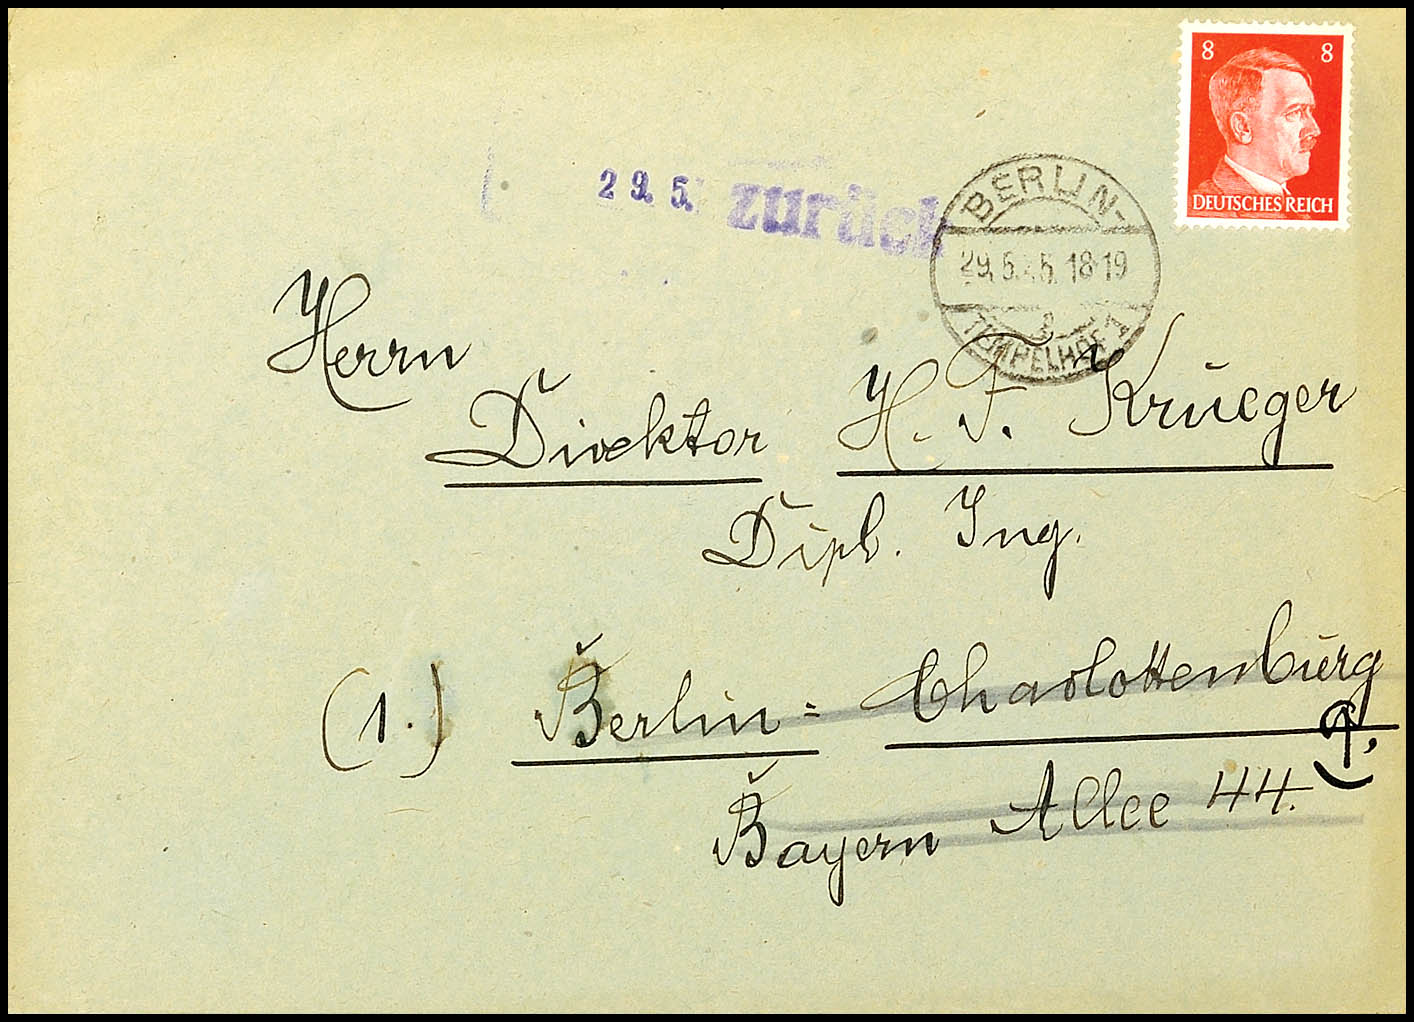 8 8
DEUTSCHES REICH
29.5. zurück
BERLIN-
29.5. 5.18-19
TEMPELHOF 1
Herrn
Direktor H. F. Krueger
Dipl. Ing.
(1.) Berlin= Charlottenburg
9.
Bayern Allee 44.